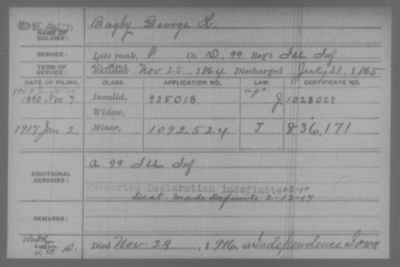 DEAD
NAME OF SOLDIER: Bagby George H.
SERVICE: Late rank, P Co. D, 99 Reg't Ill Inf
TERM OF SERVICE: Enlisted Nov 25, 1864 Discharged July 31, 1865
DATE OF FILING. CLASS. APPLICATION NO. LAW. CERTIFICATE NO.
1890 Nov 7 Invalid, 925018 J 1028027
Widow,
1917 Jan 2 Minor, 1092524 J 836,171
ADDITIONAL SERVICES: A 99 Ill Inf
Declaration Indefinite
Decl. made definite 2-12-17
REMARKS:
Died Nov-29, 1916, at Independence Iowa